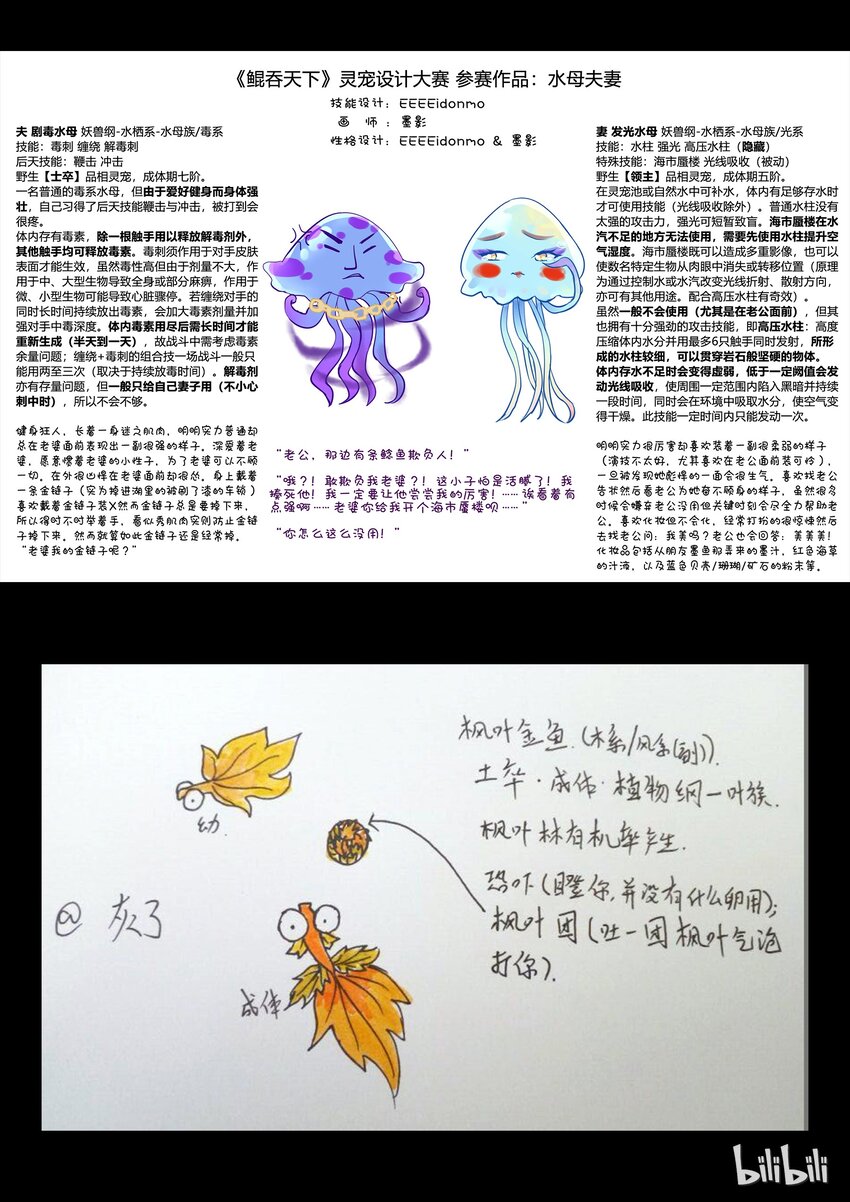 《鲲吞天下》灵宠设计大赛 参赛作品：水母夫妻
技能设计：EEEEidonmo
画 师：墨影
性格设计：EEEEidonmo & 墨影
夫 剧毒水母 妖兽纲-水栖系-水母族/毒系
技能：毒刺 缠绕 解毒刺
后天技能：鞭击 冲击
野生【士卒】品相灵宠，成体期七阶。
一名普通的毒系水母，但由于爱好健身而身体强
壮，自己习得了后天技能鞭击与冲击，被打到会
很疼。
体内存有毒素，除一根触手用以释放解毒剂外，
其他触手均可释放毒素。毒刺须作用于对手皮肤
表面才能生效，虽然毒性高但由于剂量不大，作
用于中、大型生物导致全身或部分麻痹，作用于
微、小型生物可能导致心脏骤停。若缠绕对手的
同时长时间持续放出毒素，会加大毒素剂量并加
强对手中毒深度。体内毒素用尽后需长时间才能
重新生成（半天到一天），故战斗中需考虑毒素
余量问题；缠绕+毒刺的组合技一场战斗一般只
能用两至三次（取决于持续放毒时间）。解毒剂
亦有存量问题，但一般只给自己妻子用（不小心
刺中时），所以不会不够。
健身狂人，长着一身迷之肌肉，明明实力普通却
总在老婆面前表现出一副很强的样子。深爱着老
婆，愿意惯着老婆的小性子，为了老婆可以不顾
一切。在外很凶悍在老婆面前却很怂。身上戴着
一条金链子（实为掉进湖里的被刷了漆的车锁）
喜欢戴着金链子装X然而金链子总是要掉下来，
所以得时不时举着手，看似秀肌肉实则防止金链
子掉下来。然而就算如此金链子还是经常掉。
“老婆我的金链子呢？”
“老公，那边有条鲶鱼欺负人！”
“哦？！敢欺负我老婆？！这小子怕是活腻了！我
揍死他！我一定要让他尝尝我的厉害！……诶看着有
点强啊……老婆你给我开个海市蜃楼呗……”
“你怎么这么没用！”
妻 发光水母 妖兽纲-水栖系-水母族/光系
技能：水柱 强光 高压水柱（隐藏）
特殊技能：海市蜃楼 光线吸收（被动）
野生【领主】品相灵宠，成体期五阶。
在灵宠池或自然水中可补水，体内有足够存水时
才可使用技能（光线吸收除外）。普通水柱没有
太强的攻击力，强光可短暂致盲。海市蜃楼在水
汽不足的地方无法使用，需要先使用水柱提升空
气湿度。海市蜃楼既可以造成多重影像，也可以
使数名特定生物从肉眼中消失或转移位置（原理
为通过控制水或水汽改变光线折射、散射方向，
亦可有其他用途。配合高压水柱有奇效）。
虽然一般不会使用（尤其是在老公面前），但其
也拥有十分强劲的攻击技能，即高压水柱：高度
压缩体内水分并用最多6只触手同时发射，所形
成的水柱较细，可以贯穿岩石般坚硬的物体。
体内存水不足时会变得虚弱，低于一定阈值会发
动光线吸收，使周围一定范围内陷入黑暗并持续
一段时间，同时会在环境中吸取水分，使空气变
得干燥。此技能一定时间内只能发动一次。
明明实力很厉害却喜欢装着一副很柔弱的样子
（演技不太好，尤其喜欢在老公面前装可怜），
一旦被发现她彪悍的一面会很生气。喜欢找老公
告状然后看老公为她奋不顾身的样子，虽然很多
时候会嫌弃老公没用但关键时刻会尽全力帮助老
公。喜欢化妆但不会化，经常打扮的很惊悚然后
去找老公问：我美吗？老公也会回答：美美美！
化妆品包括从朋友墨鱼那弄来的墨汁，红色海草
的汁液，以及蓝色贝壳/珊瑚/矿石的粉末等。
枫叶金鱼.（木系/风系(副)）.
士卒·成体·植物纲－叶族.
枫叶林有机率产生.
恐吓（瞪你,并没有什么卵用）;
枫叶团（吐一团枫叶气泡
打你）.
幼.
@ 灰了
成体
bilibili